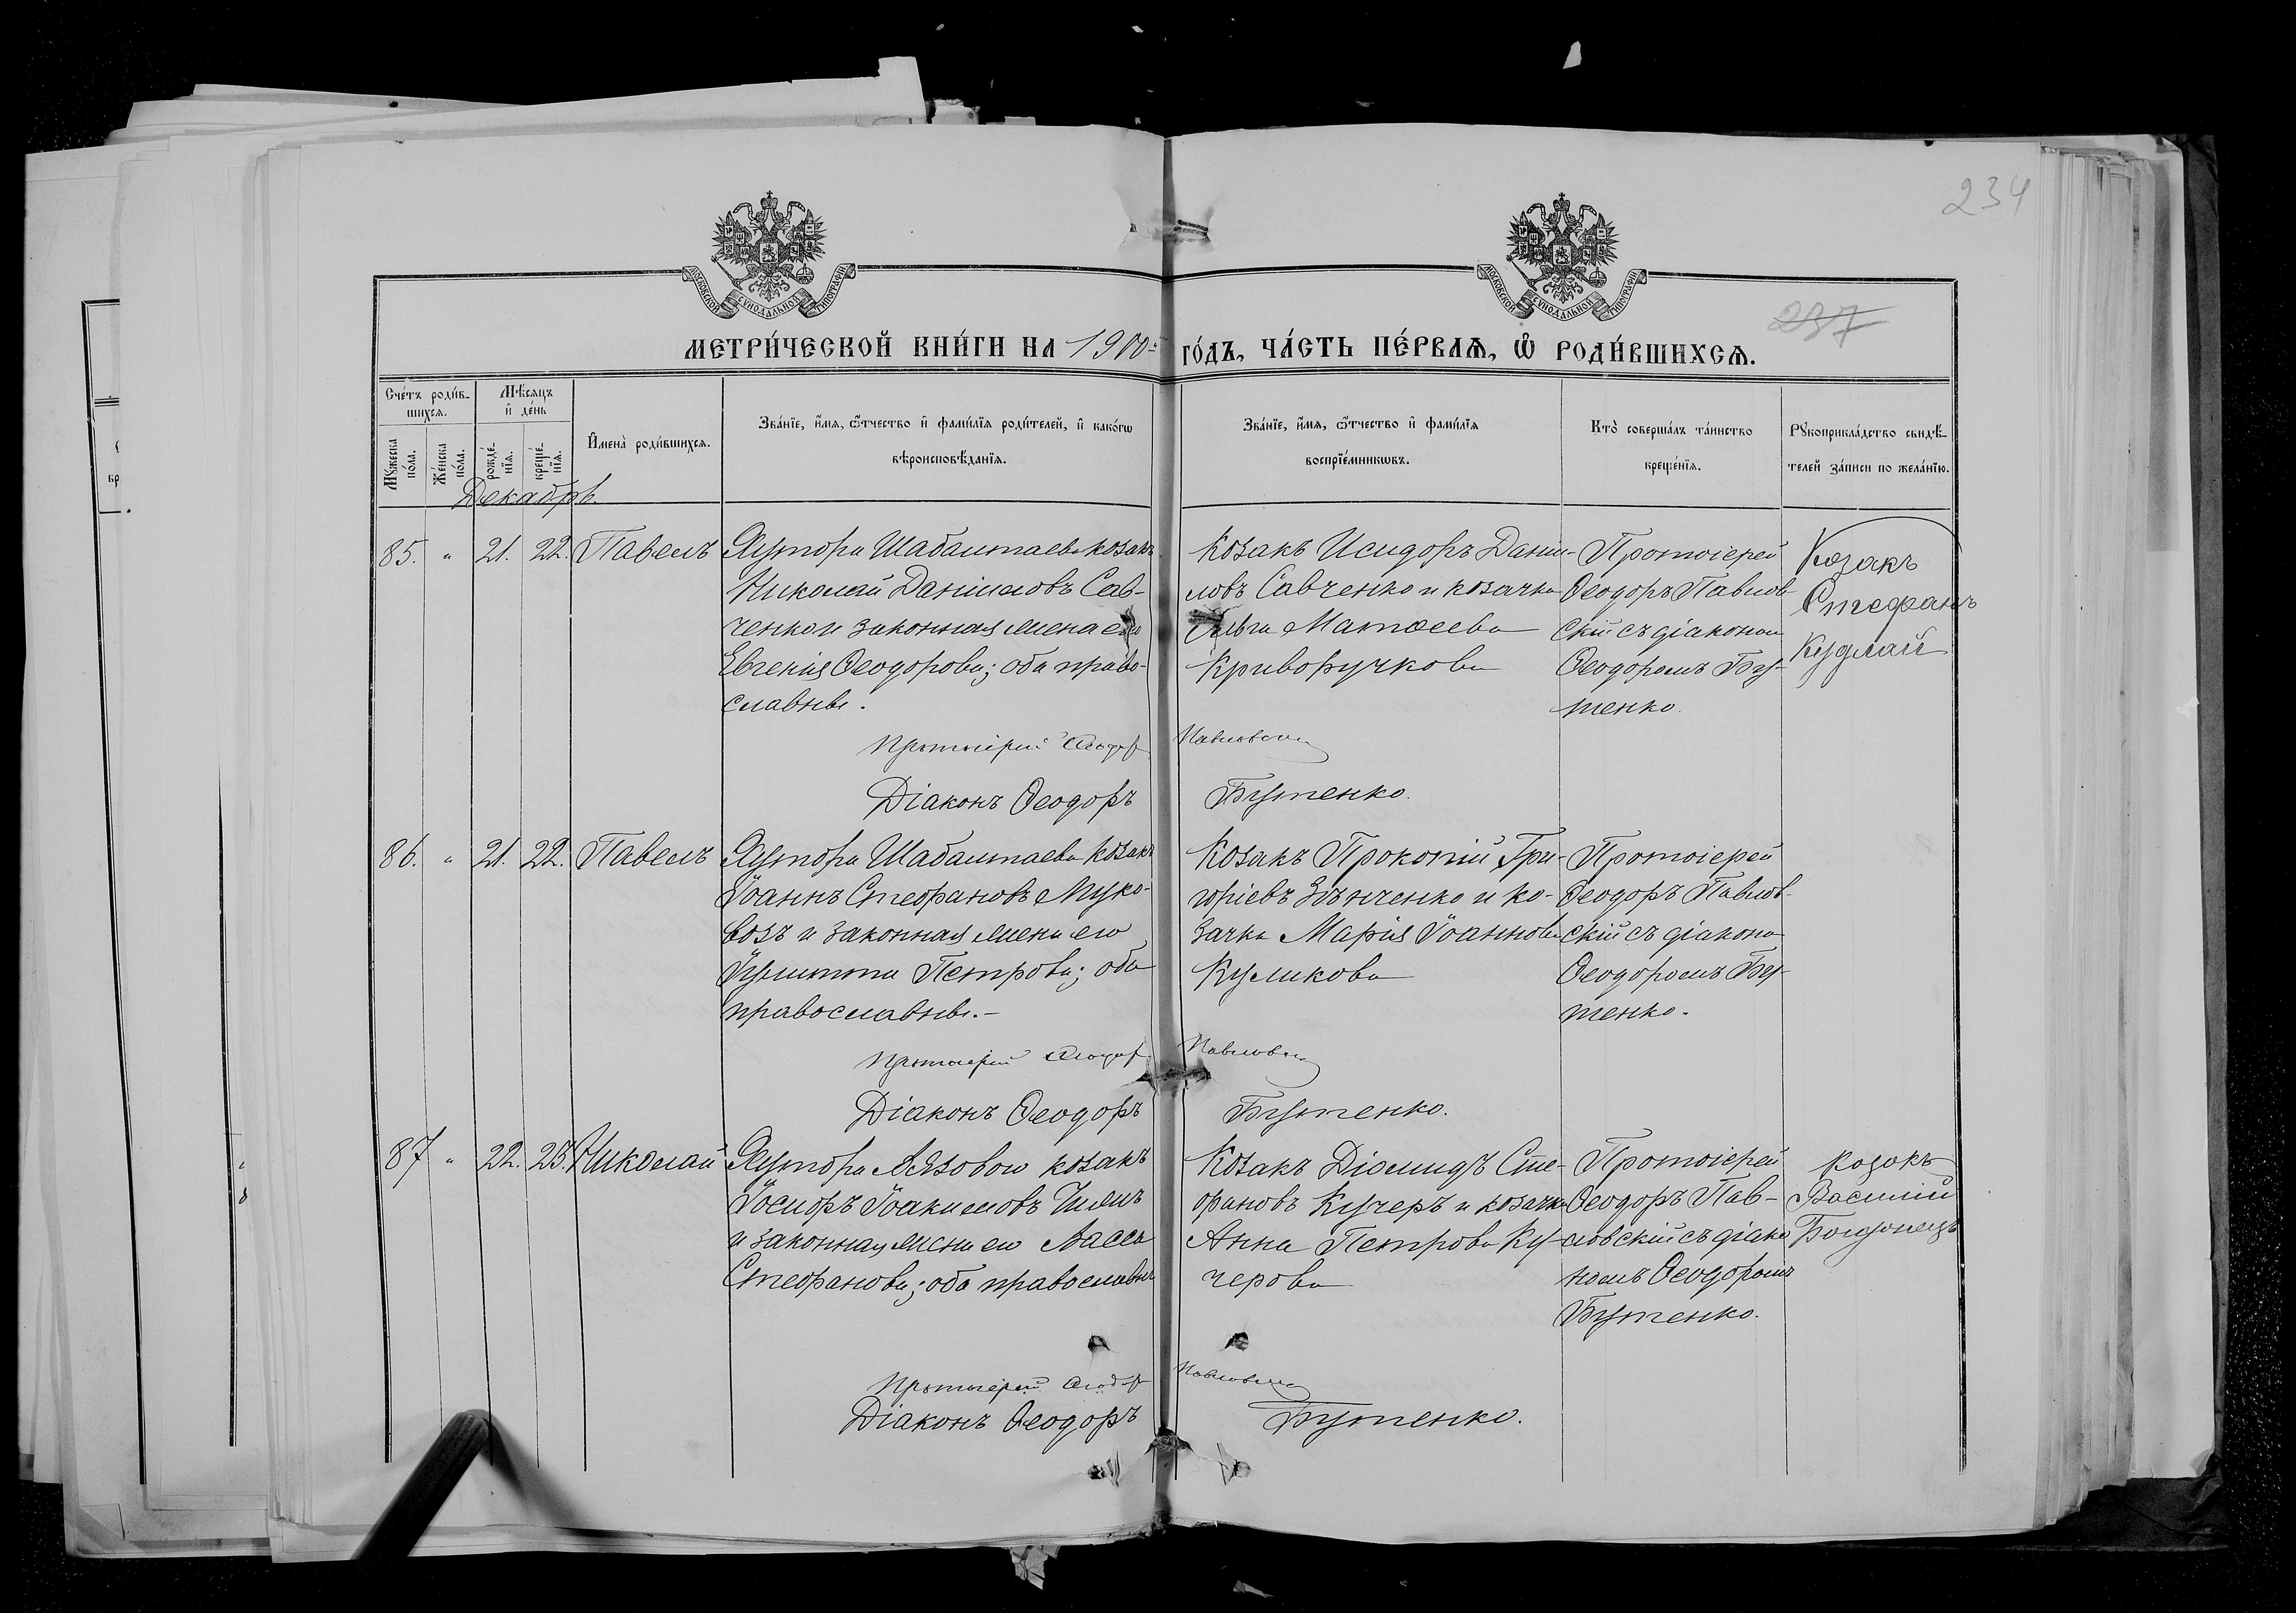 234
МОСКОВСКОЙ СѴНОДАЛЬНОЙ ТИПОГРАФІИ
МОСКОВСКОЙ СѴНОДАЛЬНОЙ ТИПОГРАФІИ
237
МЕТРИ́ЧЕСКОЙ КНИ́ГИ НА 1900 ГО́ДЪ, ЧА́СТЬ ПЕ́РВАЯ, Ѽ РОДИ́ВШИХСѦ.
Сче́тъ роди́в-
шихсѧ.
Мѣсѧцъ
и҆ де́нь
Мꙋжеска
по́ла.
Же́нска
по́ла.
рожде́-
нїѧ.
креще́-
нїѧ.
И҆мена̀ роди́вшихсѧ.
Зва́нїе, и҆́мѧ, ѻ҆́тчество и҆ фами́лїѧ роди́телей, и҆ како́гѡ
вѣроисповѣ́данїѧ.
Зва́нїе, и҆́мѧ, ѻ҆́тчество и҆ фами́лїѧ
воспрїе́мникѡвъ.
Кто̀ соверша́лъ та́инство
креще́нїѧ.
Рꙋкоприкла́дство свидѣ́-
телей за́писи по жела́нїю.
Декабрь.
85. " 21. 22. Павелъ
Хутора Шабалтаева козакъ
Николай Даніиловъ Сав-
ченко и законная жена его
Евгенія Ѳеодорова; оба право-
славные.
Козакъ Исидоръ Даніи-
ловъ Савченко и козачка
Ольга Матѳеева
Криворучкова
Протоіерей
Ѳеодоръ Павлов-
скій съ діакономъ
Ѳеодоромъ Бу-
тенко.
Козакъ
Стефанъ
Кудлай
Протоіерей Ѳеодоръ Павловскій
Діаконъ Ѳеодоръ Бутенко.
86. " 21. 22. Павелъ
Хутора Шабалтаева козакъ
Іоаннъ Стефановъ Муко-
возъ и законная жена его
Іулитта Петрова; оба
православные.-
Козакъ Прокопій Гри-
горіевъ Зѣнченко и ко-
зачка Марія Іоаннова
Куликова
Протоіерей
Ѳеодоръ Павлов-
скій съ діакономъ
Ѳеодоромъ Бу-
тенко.
Протоіерей Ѳеодоръ Павловскій
Діаконъ Ѳеодоръ Бутенко.
87 " 22. 25. Николай
Хутора Лязовою козакъ
Іосифъ Іоакимовъ
и законная жена его Васса
Стефанова; оба православные
Козакъ Діомидъ Сте-
фановъ Кучеръ и козачка
Анна Петрова Ку-
черова
Протоіерей
Ѳеодоръ Пав-
ловскій съ діако
номъ Ѳеодоромъ
Бутенко.
Козакъ
Василій
Протоіерей Ѳеодоръ Павловскій
Діаконъ Ѳеодоръ Бутенко.